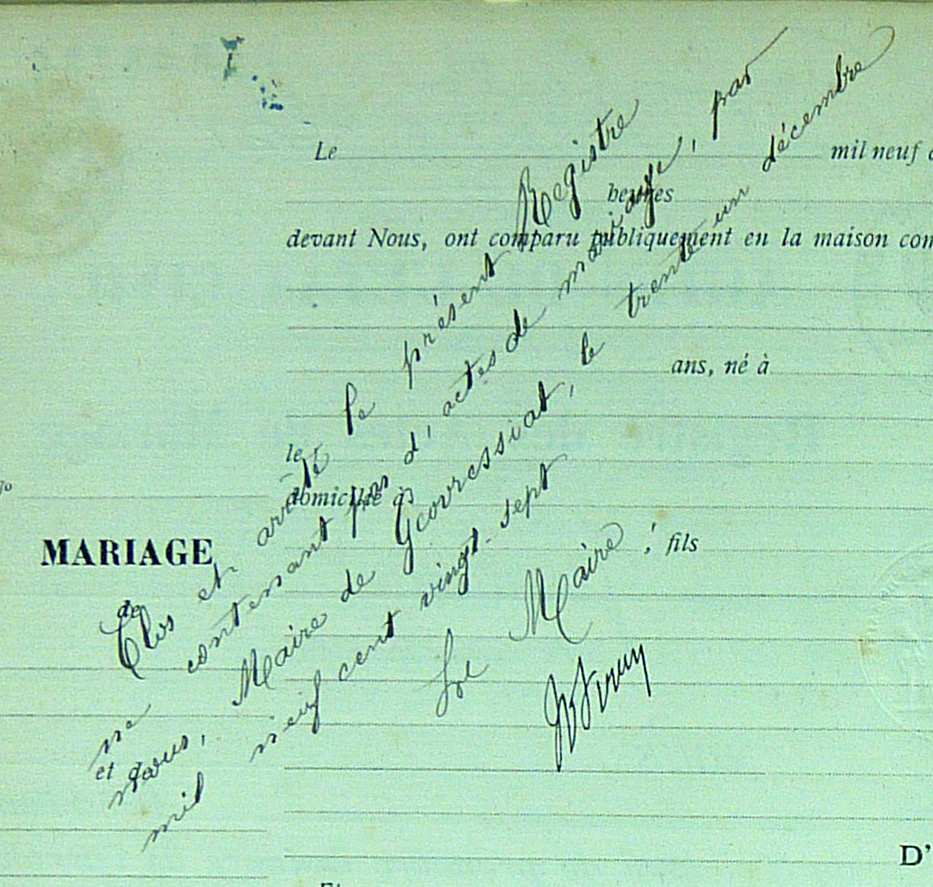 Le mil neuf
heures
devant Nous, ont comparu publiquement en la maison com
ans, né à
le
domicilié à
; fils
MARIAGE
de
et de
D'
Clos et arrêté le présent Registre
ne contenant pas d'actes de mariage, par
nous, Maire de Géovressiat, le trente un décembre
mil neuf cent vingt-sept
Le Maire